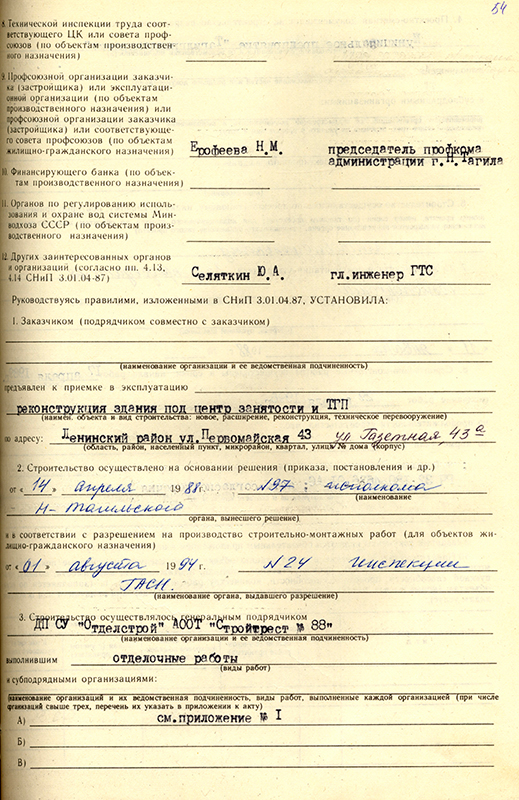 54
8. Технической инспекции труда соот-
ветствующего ЦК или совета проф-
союзов (по объектам производствен-
ного назначения)
9. Профсоюзной организации заказчи-
ка (застройщика) или эксплуатаци-
онной организации (по объектам
производственного назначения) или
профсоюзной организации заказчика
(застройщика) или соответствующе-
го совета профсоюзов (по объектам
жилищно-гражданского назначения)
Ерофеева Н.М. председатель профкома
администрации г.Н.Тагила
10. Финансирующего банка (по объек-
там производственного назначения)
11. Органов по регулированию исполь-
зования и охране вод системы Мин-
водхоза СССР (по объектам произ-
водственного назначения)
12. Других заинтересованных органов
и организаций (согласно пп. 4.13,
4.14 СНиП 3.01.04-87)
Селяткин Ю.А. гл.инженер ГТС
Руководствуясь правилами, изложенными в СНиП 3.01.04.87, УСТАНОВИЛА:
1. Заказчиком (подрядчиком совместно с заказчиком)
(наименование организации и ее ведомственная подчиненность)
предъявлен к приемке в эксплуатацию
реконструкция здания под центр занятости и ТГП
(наимен. объекта и вид строительства: новое, расширение, реконструкция, техническое перевооружение)
по адресу: Ленинский район ул.Первомайская 43 ул Газетная, 43а
(область, район, населенный пункт, микрорайон, квартал, улица, № дома (корпус)
2. Строительство осуществлено на основании решения (приказа, постановления и др.)
от «14» апреля 1988г. №97 исполкома
(наименование
Н-Тагильского
органа, вынесшего решение)
и в соответствии с разрешением на производство строительно-монтажных работ (для объектов жи-
лищно-гражданского назначения)
от «01» августа 1994 г. №24 Инспекции
ГАСН.
(наименование органа, выдавшего разрешение)
3. Строительство осуществлялось генеральным подрядчиком
ДП СУ "Отделстрой" АООТ "Стройтрест № 88"
(наименование организации и ее ведомственная подчиненность)
выполнившим отделочные работы
(виды работ)
и субподрядными организациями:
(наименование организаций и их ведомственная подчиненность, виды работ, выполненные каждой организацией (при числе
организаций свыше трех, перечень их указать в приложении к акту)
А) см.приложение № I
Б)
В)